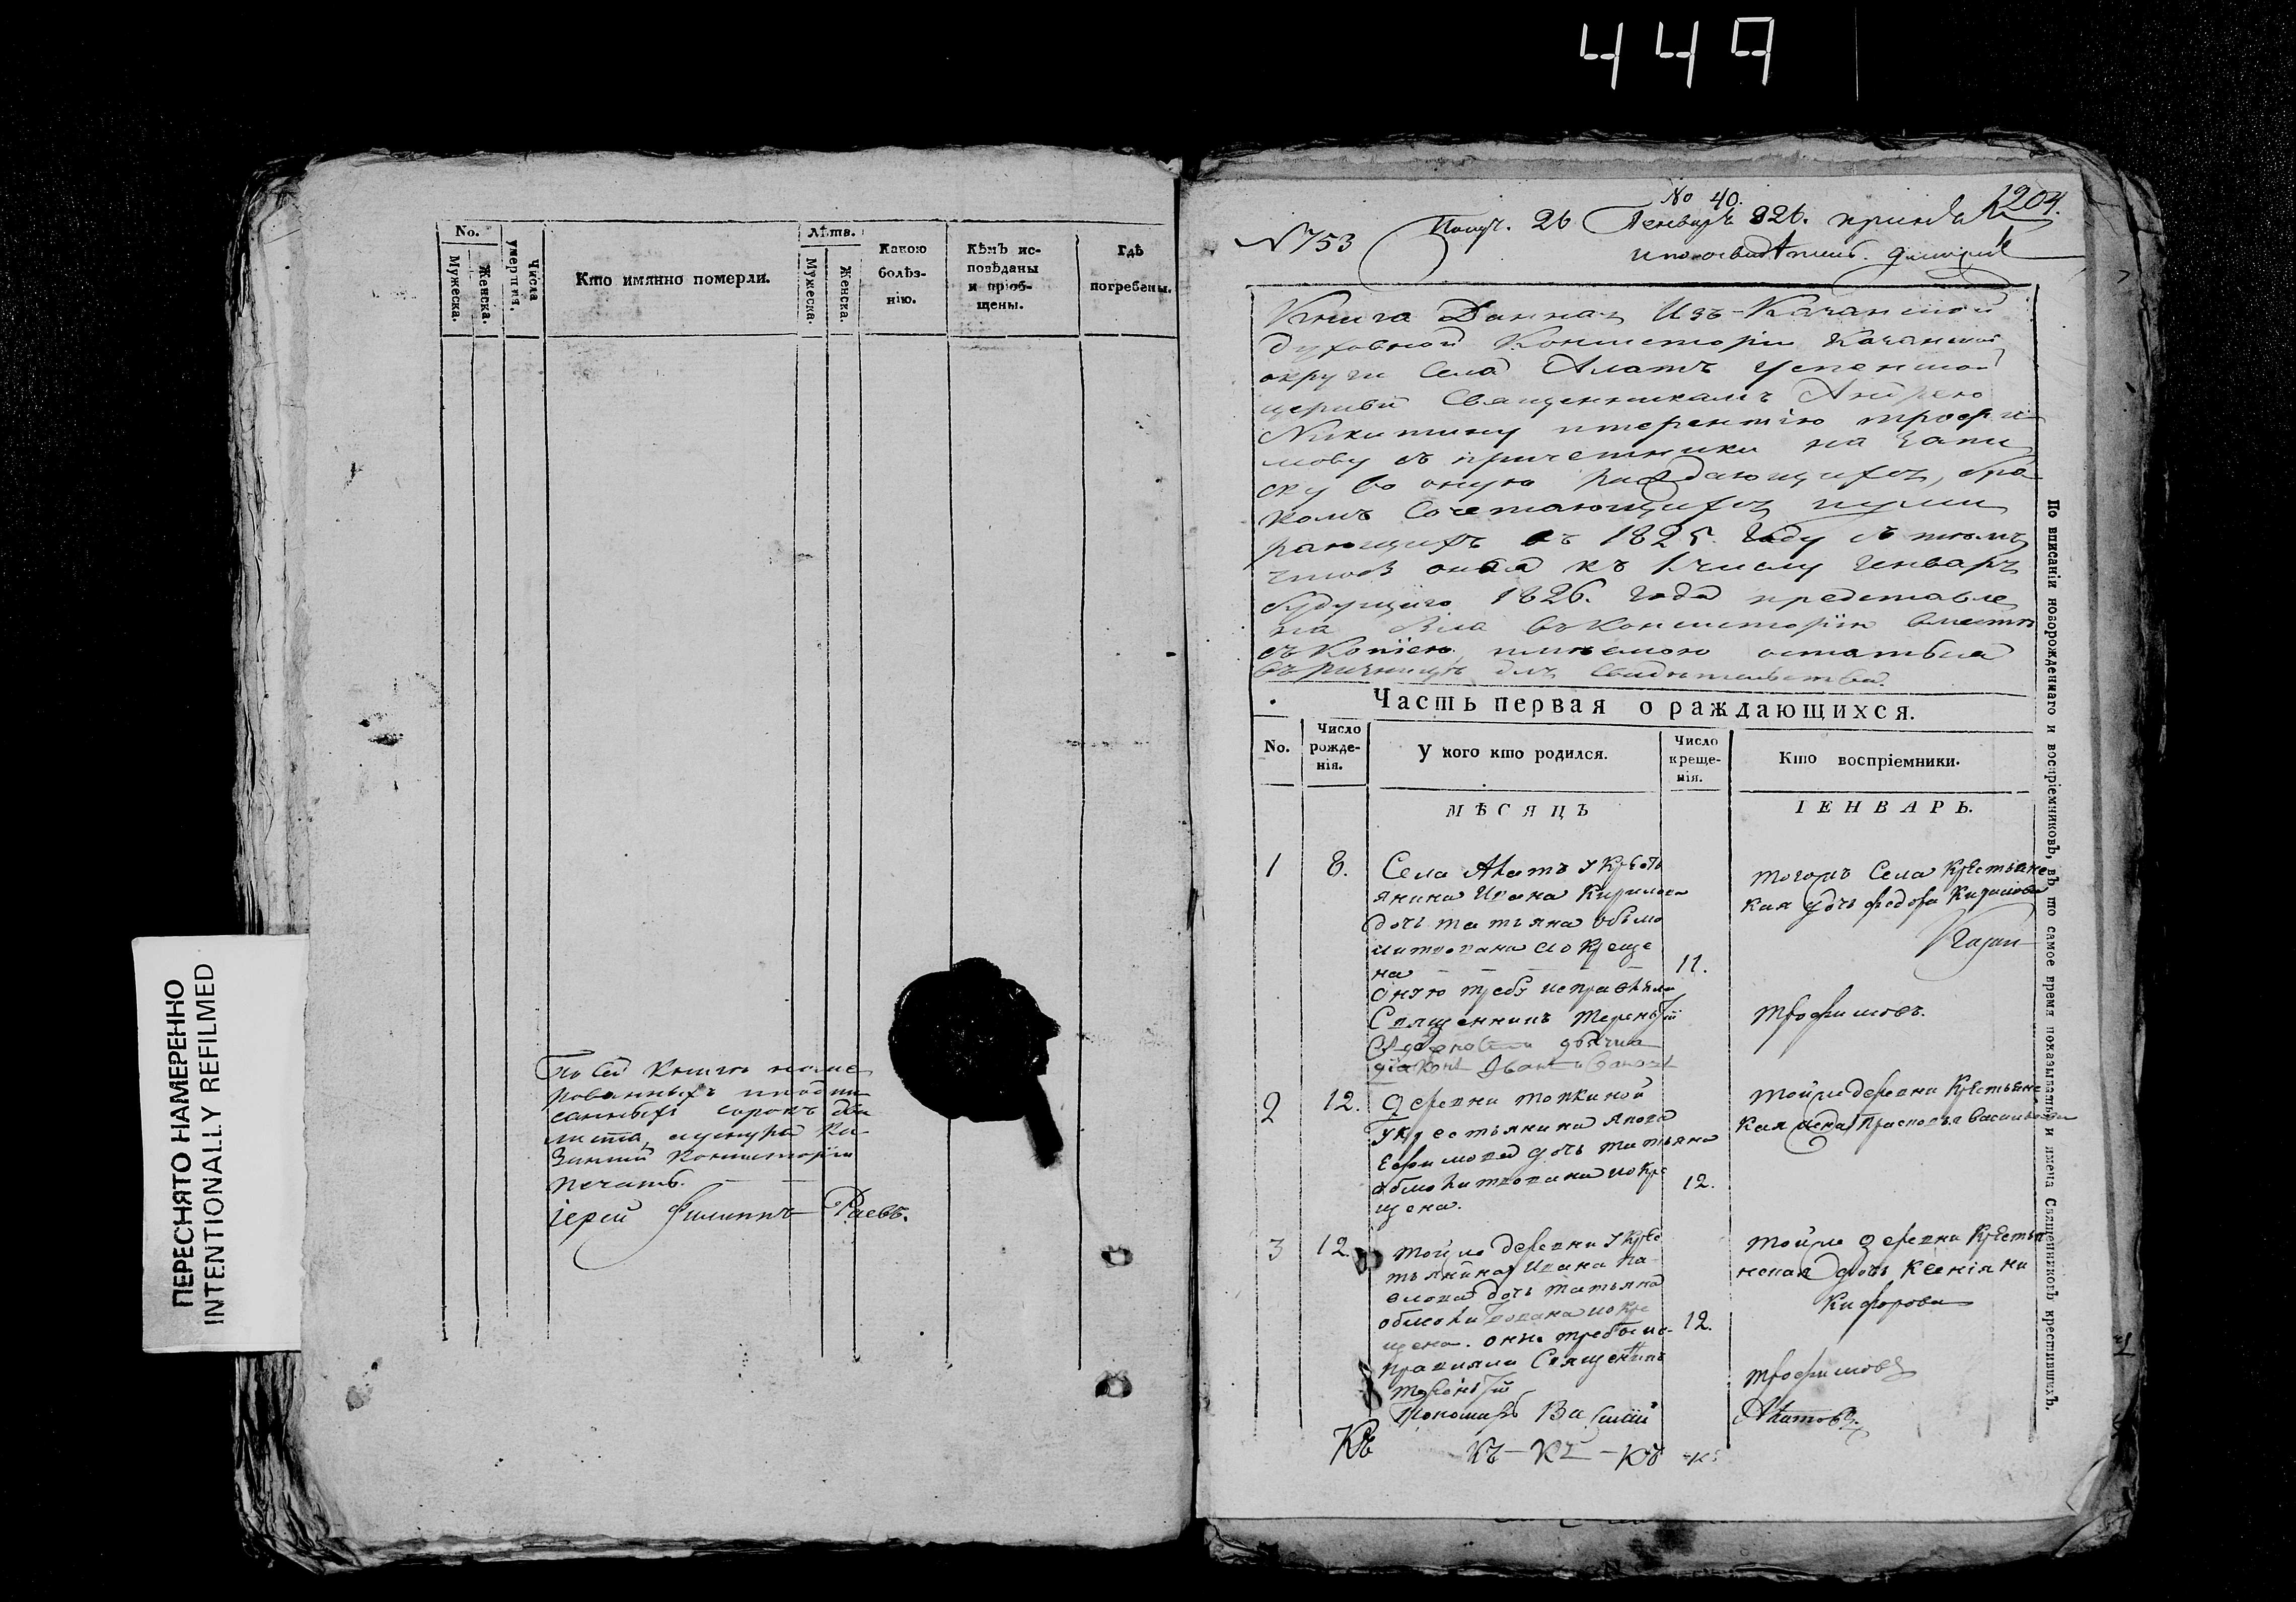 449
No.
Мужеска.
Женска.
Числа умершия.
Кто имянно померли.
Лѣтъ.
Мужеска.
Женска.
Какою болѣз-
нію.
Кѣмъ ис-
повѣданы
и пріоб-
щены.
Гдѣ
погребены.
По сей книге номе
рованныхъ
санныхъ сорокъ два
листа, Ка
занской Консисторіи
печать.
іерей Филиппъ Раевъ.
ПЕРЕСНЯТО НАМЕРЕННО
INTENTIONALLY REFILMED
No 40.
204.
N 753
Получ. 26 Генваря 826.
Книга Данная Изъ Казанской
духовной Консисторіи Казанской
округи Села Алатъ Успенской
церкви Священникамъ Андрею
Никитину итерентію трофи
мову съ причетники на запи
ску во оную раждающихся, бра
комъ Сочетающихся иуми
рающихъ въ 1825 году съ темъ
чтобъ оная къ 1 числу Генваря
будущаго 1826. года представле
на была въ Консисторію вместе
съ Копіею, остаться
въ ризнице для Свидетельства.
Часть первая о раждающихся.
No.
Число
рожде-
нія.
У кого кто родился.
Число
креще-
нія.
Кто воспріемники.
МѢСЯЦЪ
ІЕНВАРЬ.
1 8. Села Алатъ у Кресть
янина Ивана Кирилова
дочь татьяна обмо
литвована ио Креще
на 11.
Оную требу исправляли
Священникъ Терентій
діаконъ Иванъ
тогожъ Села Крестьянс
кая дочь федора Кирилова
трофимовъ.
2 12. Деревни топкиной
у Крестьянина якова
Ефимова дочь татьяна
обмолитвована ио Кре
щена. 12.
тойже деревни Крестьянс
кая жена Прасковья Васильева
3 12. тойже деревни у Крес
тьянина Ивана Па
влова дочь татьяна
обмолитвована ио Кре
щена. оные требы ис- 12.
правляли Священникъ
терентій
Пономарь Василій
тойже деревни Крестья
нская дочь Ксенія Ни
кифорова
трофимовъ
Алатовъ
По вписаніи новорожденнаго и воспріемниковъ, въ то самое время показывать и имена Священниковъ крестившихъ.